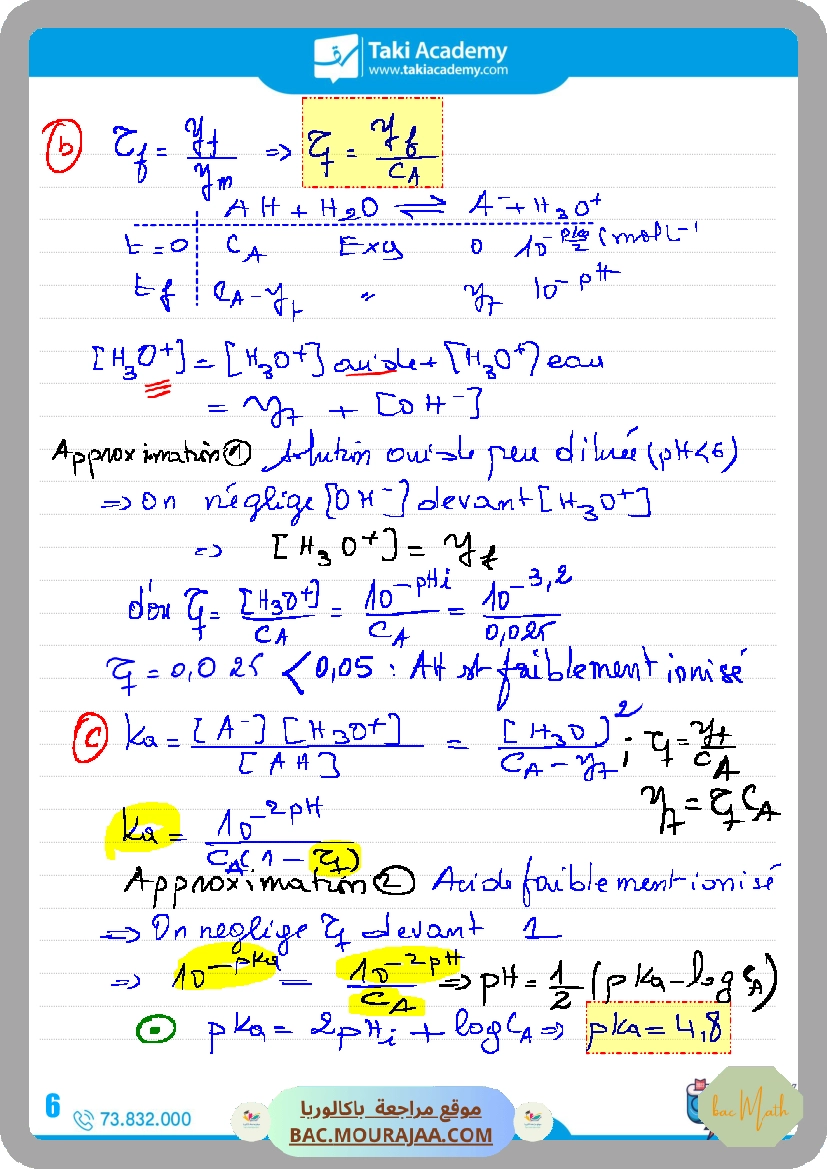 Taki Academy
www.takiacademy.com
b) τf = yf/ym => τf = yf/CA
AH + H2O ⇌ A- + H3O+
t=0 CA Excès 0 10^(-pke/2) (mol L-1
tf CA-yf " yf 10^-pH
[H3O+] = [H3O+] acide + [H3O+] eau
= yf + [OH-]
Approximation ① solution acide peu diluée (pH<6)
=> on néglige [OH-] devant [H3O+]
=> [H3O+] = yf
d'où τf = [H3O+]/CA = 10^-pHi/CA = 10^-3,2/0,025
τf = 0,025 < 0,05 : AH est faiblement ionisé
c) Ka = [A-][H3O+]/[AH] = [H3O]^2/(CA-yf) ; τf = yf/CA
yf = τf CA
Ka = 10^-2pH/(CA(1-τf))
Approximation ② Acide faiblement ionisé
=> On neglige τf devant 1
=> 10^-pKa = 10^-2pH/CA => pH = 1/2 (pKa - log CA)
pKa = 2pHi + log CA => pKa = 4,8
6
73.832.000
موقع مراجعة باكالوريا
BAC.MOURAJAA.COM
bac Math